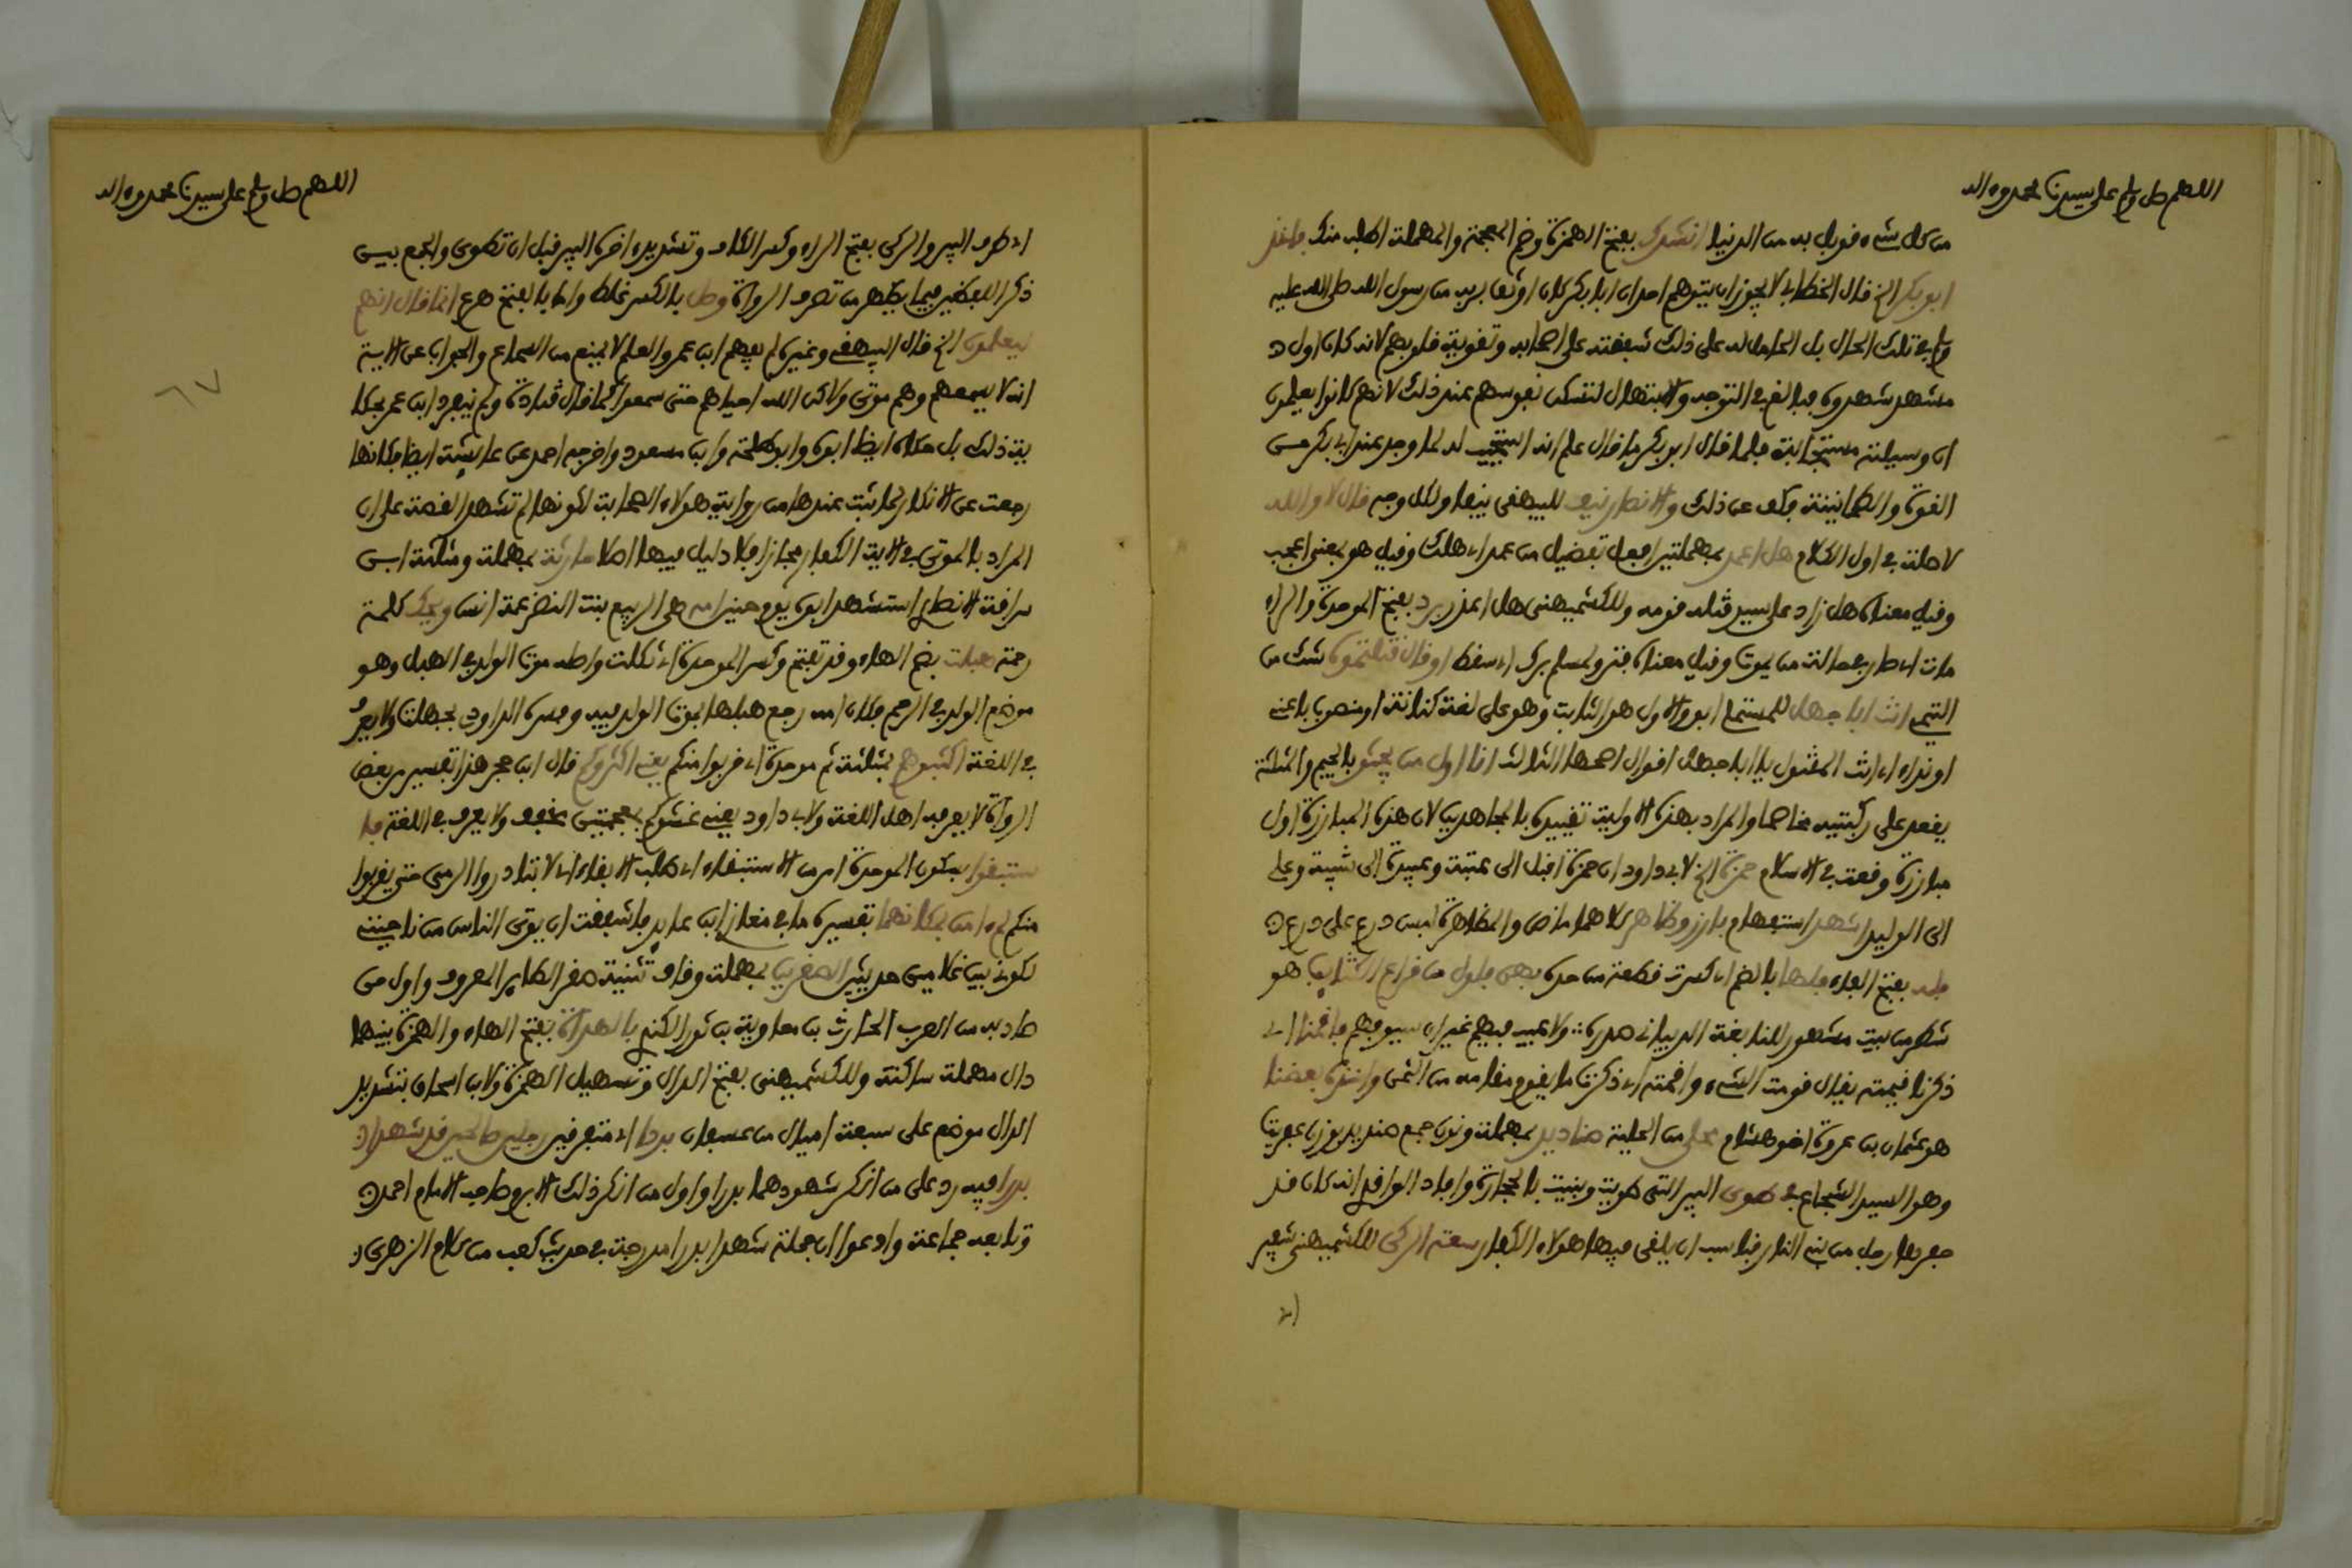 اللهم صل وسلم على سيدنا محمد وءاله
من كل شيء قوبل به من الدنيا انشدك بفتح الهمزة وضم المعجمة والمهملة اطلب منك فاخذ
ابو بكر الخ قال الخطابي لا يجوز ان يتوهم احد ان ابا بكر كان اوثق بربه من رسول الله صلى الله عليه
وسلم في تلك الحال بل الحامل له على ذلك شفقته على اصحابه وتقوية قلوبهم لانه كان اول
مشهد شهدوه فبالغ في التوجه والابتهال لتسكن نفوسهم عند ذلك لانهم كانوا يعلمون
ان وسيلته مستجابة فلما قال ابو بكر ما قال علم انه استجيب له لما وجد عند ابي بكر من
القوة والطمانينة فكف عن ذلك والانصار نيف للبيهقي نيفا ولكل وجه قال لا والله
لا صلة في اول الكلام هل اعمد بمهملتين افعل تفضيل من عمد اي هلك وقيل هو بمعنى اعجب
وقيل معناه هل زاد على سيد قتله قومه وللكشميهني هل اعذر برد بفتح الموحدة والراء
مات اي صار في حالة من يموت وقيل معناه فتر ولمسلم برك اي سقط او قال قتلتموه شك من
التيمي انت ابا جهل للمستملي ابو والاول هو الثابت وهو على لغة كنانة او منصوب باعني
او نداء اي انت المقتول يا ابا جهل اقوال اصحها الثالث انا اول من يجثو بالجيم والمثلثة
يقعد على ركبتيه مخاصما والمراد بهذه الاولية تقييده بالمجاهدين لان هذه المبارزة اول
مبارزة وقعت في الاسلام حمزة الخ لابي داود ان حمزة اقبل الى عتبة وعبيدة الى شيبة وعلي
الى الوليد اشهد استفهام بارز وظاهر كلاهما ماض والمظاهرة لبس درع على درع
فلة بفتح الفاء فلها بالضم اي كسرت قطعة من حده بهن فلول من قراع الكتايب هو
شطر من بيت مشهور للنابغة الذبياني صدره ولا عيب فيهم غير ان سيوفهم فاقمنا اي
ذكرنا قيمته يقال قومت الشيء واقمته اي ذكرت ما يقوم مقامه من الثمن واخذه بعضنا
هو عثمان بن عروة اخو هشام محلى من الحلية صناديد بمهملة ونون جمع صنديد بوزن عفريت
وهو السيد الشجاع في طوى البير التي طويت وبنيت بالحجارة وافاد الواقدي انه كان قد
حفرها رجل من بني النار فناسب ان يلقى فيها هولاء الكفار سعة الركى للكشميهني شفير
اي
اللهم صل وسلم على سيدنا محمد وءاله
اي طرف البير والركى بفتح الراء وكسر الكاف وتشديد اخره البير قبل ان تطوى والجمع بين
ذكر اللفظين فيما يظهر من تصرف الرواة وهل بالكسر غلط واما بالفتح هرع انما قال انهم
ليعلمون الخ قال البيهقي وغيره لم يفهم ابن عمر والعلم لا يمنع من السماع والجواب عن الاية
انه لا يسمعهم وهم موتى ولاكن الله احياهم حتى سمعوا كما قال قتادة ولم ينفرد ابن عمر بحكا
ية ذلك بل حكاه ايضا ابوه وابو طلحة وابن مسعود واخرجه احمد عن عايشة ايضا فكانها
رجعت عن الانكار لما ثبت عندها من رواية هولاء الصحابة لكونها لم تشهد القصة على ان
المراد بالموتى في الاية الكفار مجازا فلا دليل فيها اصلا حارثة بمهملة ومثلثة ابن
سراقة الانصاري استشهد ابوه يوم حنين امه هي الربيع بنت النضر عمة انس ويحك كلمة
رحمة هبلت بضم الهاء وقد تفتح وكسر الموحدة اي ثكلت واصله موت الولد في الهبل وهو
موضع الولد في الرحم فكان امه رجع هبلها بموت الولد فيه وفسره الداودي بجهلت ولا يعرف
في اللغة اكثبوهم بمثلثة ثم موحدة اي قربوا منكم يعني اكثروكم قال ابن حجر هذا تفسير من بعض
الرواة لا يعرفه اهل اللغة ولابي داود يعني غشوكم بمعجمتين مخفف ولا يعرف في اللغة فا
ستبقوا بسكون الموحدة امر من الاستبقاء اي طلب الابقاء اي لا تبادروا الرمي حتى يقربوا
منكم لم ءامن بمكانهما تفسيره ما في مغازي ابن عايد فاشفقت ان يوتى الناس من ناحيتي
لكوني بين غلامين حديثين الصقرين بمهملة وقاف تثنية صقر الطاير المعروف واول من
صاد به من العرب الحارث بن معاوية بن ثور الكندي بالهداة بفتح الهاء والهمزة بينهما
دال مهملة ساكنة وللكشميهني بفتح الدال وتسهيل الهمزة ولابن اسحاق بتشديد
الدال موضع على سبعة اميال من عسفان بددا اي متفرقين رجلين صالحين قد شهدا
بدرا فيه رد على من انكر شهودهما بدرا واول من انكر ذلك الاثرم صاحب الامام احمد
وتابعه جماعة وادعوا ان جملة شهدا بدرا مدرجة في حديث كعب من كلام الزهري
٦٧